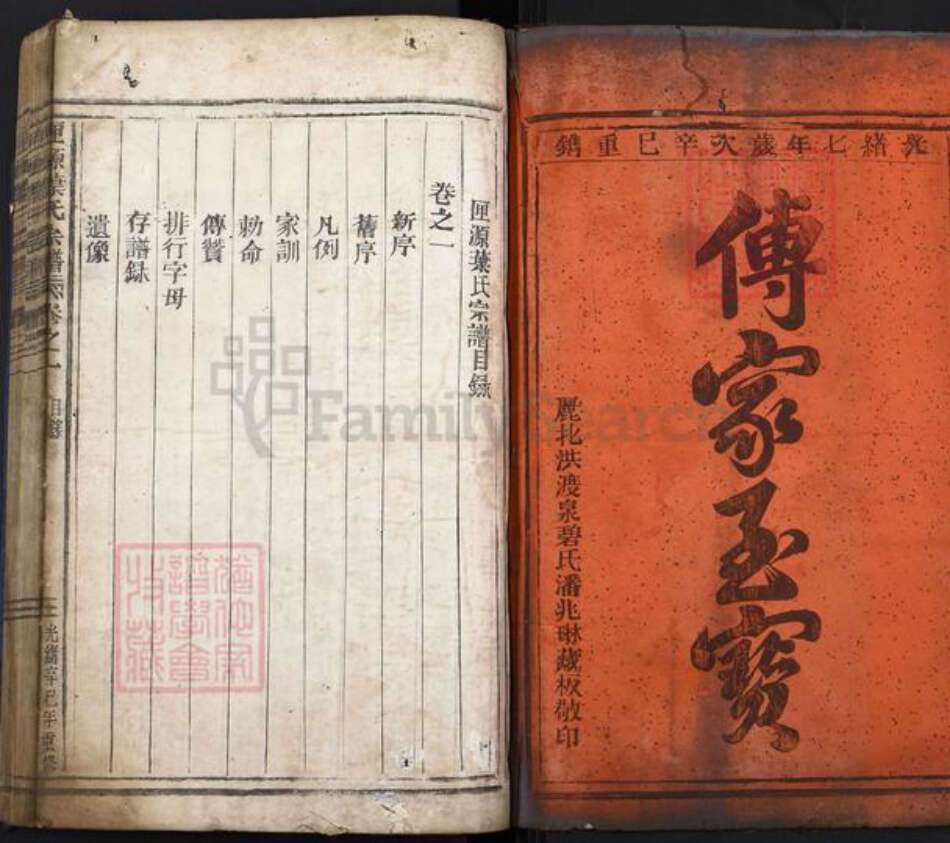 光緒七年歲次辛巳重鐫
傳家至寶
麗北洪渡泉碧氏潘兆琳藏板敬印
匣源葉氏宗譜目錄
卷之一
新序
舊序
凡例
家訓
勅命
傳贊
排行字母
存譜録
遺像
匣源葉氏宗譜 卷之一 目録
光緒辛巳年重修
FamilySearch